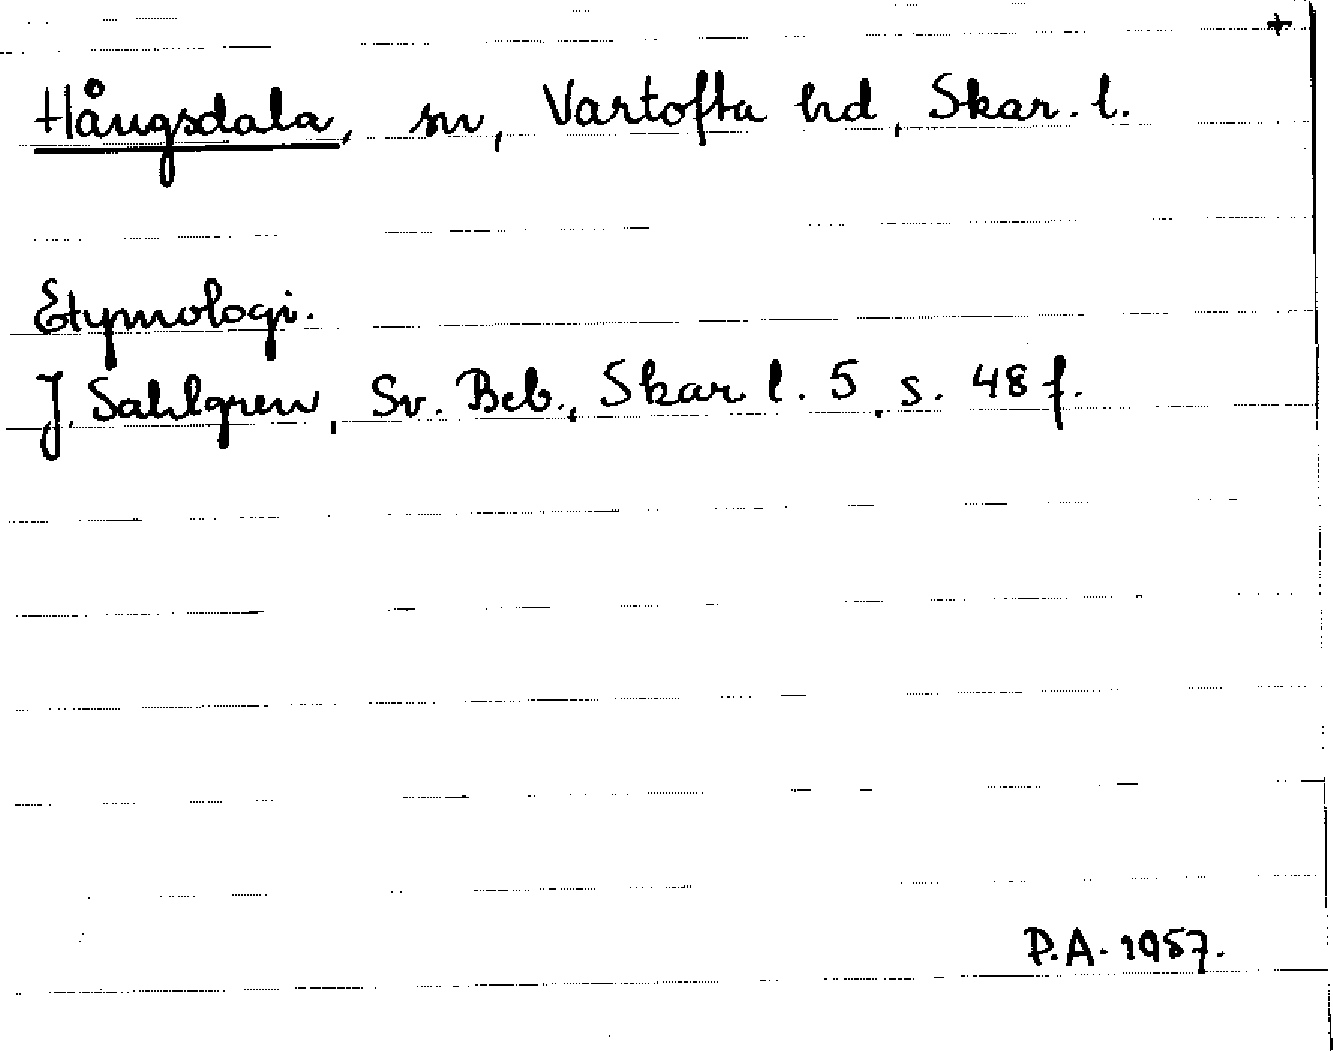 +
Hångsdala, sn, Vartofta hd, Skar. l.
Etymologi.
J. Sahlgren, Sv. Beb., Skar. l. 5, s. 48 f.
P.A. 1957.